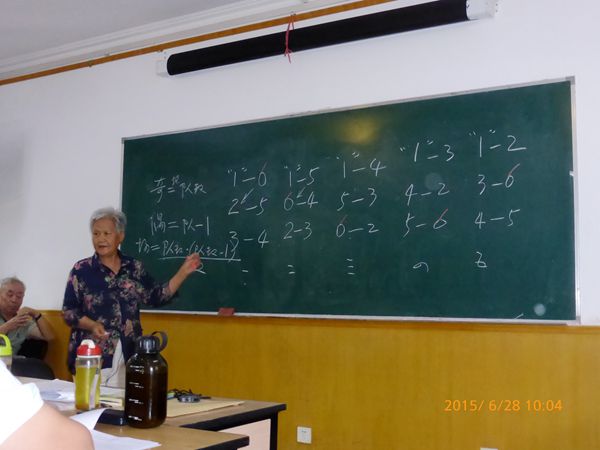 奇=队数 "1"-6 "1"-5 "1"-4 "1"-3 "1"-2
2-5 6-4 5-3 4-2 3-6
偶=队-1 3-4 2-3 6-2 5-6 4-5
场=队数·(队数-1)
2 一 二 三 四 五
2015/ 6/28 10:04